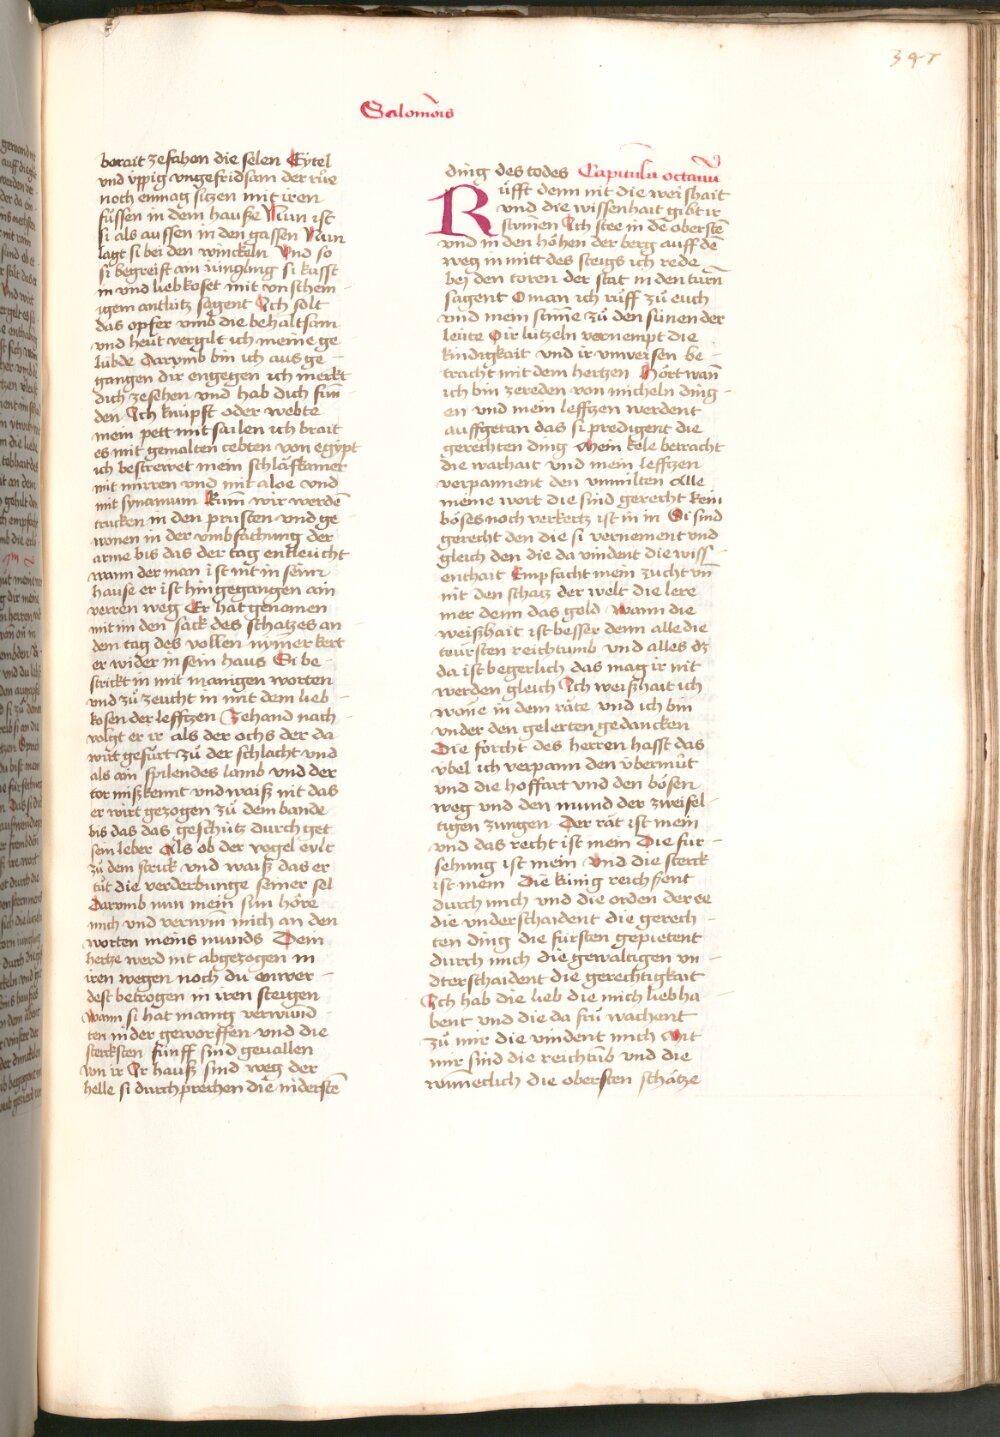 347
Salomōis
berait zefahen die selen Eytel
vnd v̈ppig vngefridsam der růe
noch enmag sitzen mit iren
füssen in dem hauße Nun ist
si als aussen in den gassen Nun
lagt si bei den winckeln Vnd so
si begreift ain iüngling si kusst
in vnd liebkoset mit vnschem
igem antlütz sagent Ich solt
das opfer vmb die behaltsam
vnd heut vergilt ich meine ge
lübde darvmb bin ich aus ge
gangen dir engegen ich merkt
dich zesehen vnd hab dich fun
den Ich knüpft oder webte
mein pett mit sailen ich brait
es mit gemalten tebten von egipt
ich bestrewet mein schlafkamer
mit mirren vnd mit aloe vnd
mit synamum Kum̄ wir werdē
trucken in den prüsten vnd ge
wonen in der vmbfachung der
arme bis das der tag enkleucht
wann der man ist nit in seinē
hause er ist hingegangen ain
verren weg Er hat genomen
mit im den sack des schatzes an
dem tag des vollen nymer kert
er wider in sein haus Si be
strickt in mit manigen worten
vnd zů zeucht in mit dem lieb
kosen der lefftzen Zehand nach
volgt er ir als der ochs der da
wirt gefürt zů der schlacht vnd
als ain spilendes lamb vnd der
tor mißkennt vnd waiß nit das
er wirt gezogen zů dem bande
bis das das geschütz durchget
sein leber Als ob der vogel eylt
zů dem strick vnd waiß das er
tůt die verderbunge seiner sel
Darvmb nun mein sun höre
mich vnd vernym̄ mich an den
worten meins munds Dein
hertze werd nit abgezogen in
iren wegen noch du enwer
dest betrogen in iren steigen
Wann si hat manig verwund
ten nider geworffen vnd die
stercksten sind geuallen
von ir Ir hauß sind weg der
helle si durchprechen die niderstē
ding des todes Capitulū octauū
Růfft denn nit die weishait
vnd die wissenhait gibt ir
stymen Ich stee in dē oberstē
vnd in den höhen der berg auff dē
weg in mitt des steigs ich rede
bei den toren der stat in den türn
sagent O man ich rüff zů euch
vnd mein stime zů den sünen der
leute O ir lützeln vernempt die
kündigkait vnd ir vnweisen be
tracht mit dem hertzen Hört wan̄
ich bin zereden von micheln ding
en vnd mein lefftzen werdent
auffgetan das si predigent die
gerechten ding Mein kele betracht
die warhait vnd mein lefftzen
verpannent den vnmilten Alle
meine wort die sind gerecht kein
böses noch verkertz ist in in Si sind
gerecht den die si vernement vnd
gleich den die da vindent die wiss
enthait Empfacht mein zucht vn̄
nit den schatz der welt die lere
mer denn das geld Wann die
weißhait ist besser denn alle die
teursten reichtumb vnd alles dz
da ist begerlich das mag ir nit
werden gleich Ich weißhait ich
wone in dem rate vnd ich bin
vnder den gelerten gedancken
Die forcht des herren hasst das
v̈bel ich verpann den v̈bermůt
vnd die hoffart vnd den bösen
weg vnd den mund der zweifel
tigen zungen Der rat ist mein
vnd das recht ist mein Die für
sehung ist mein Vnd die sterck
ist mein Die künig reichsent
durch mich vnd die orden der ee
die vnderschaident die gerech
ten ding die fürsten gepietent
durch mich die gewaltigen vn
dterschaident die gerechtigkait
Ich hab die lieb die mich liebha
bent vnd die da frü wachent
zů mir die vindent mich Mit
mir sind die reichtūb vnd die
wunnecklich die obersten schätze